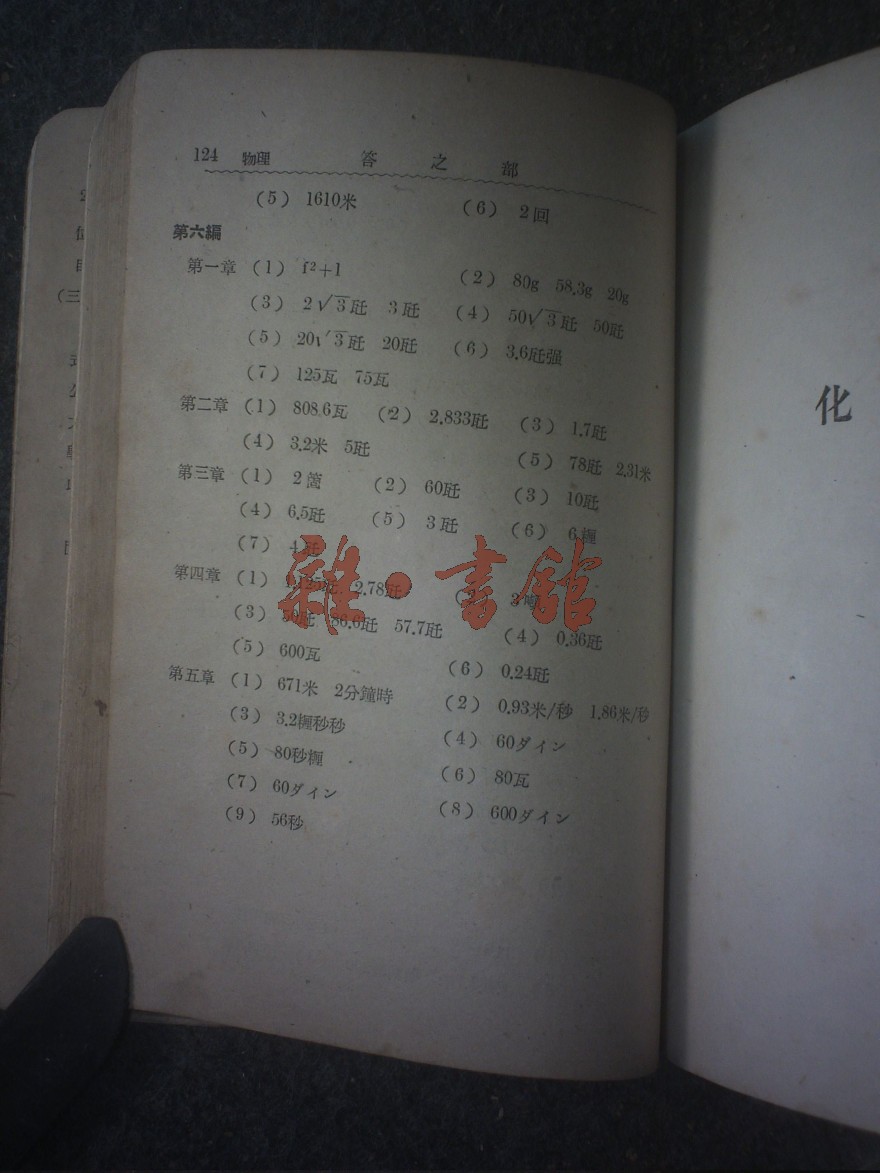 124 物理 答之部
(5) 1610米 (6) 2回
第六編
第一章 (1) f²+1 (2) 80g 58.3g 20g
(3) 2√3瓩 3瓩 (4) 50√3瓩 50瓩
(5) 20√3瓩 20瓩 (6) 3.6瓩强
(7) 125瓦 75瓦
第二章 (1) 808.6瓦 (2) 2.833瓩 (3) 1.7瓩
(4) 3.2米 5瓩 (5) 78瓩 2.31米
第三章 (1) 2箇 (2) 60瓩 (3) 10瓩
(4) 6.5瓩 (5) 3瓩 (6) 6糎
(7) 4瓩
第四章 (1) 2.78瓩
(3) 50瓩 86.6瓩 57.7瓩 (4) 0.36瓩
(5) 600瓦 (6) 0.24瓩
第五章 (1) 671米 2分鐘時 (2) 0.93米/秒 1.86米/秒
(3) 3.2糎秒秒 (4) 60ダイン
(5) 80秒糎 (6) 80瓦
(7) 60ダイン (8) 600ダイン
(9) 56秒
化
雜·書館